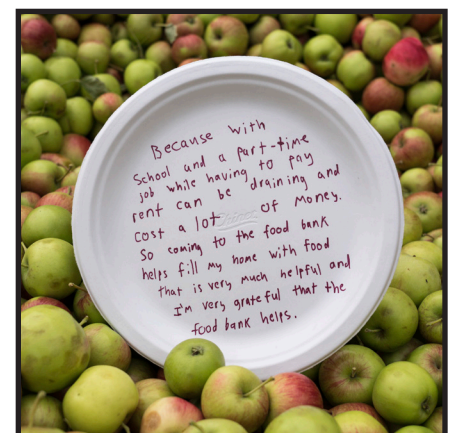 Because with
School and a part-time
job while having to pay
rent can be draining and
cost a lot of money.
So coming to the food bank
helps fill my home with food
that is very much helpful and
I'm very grateful that the
food bank helps.